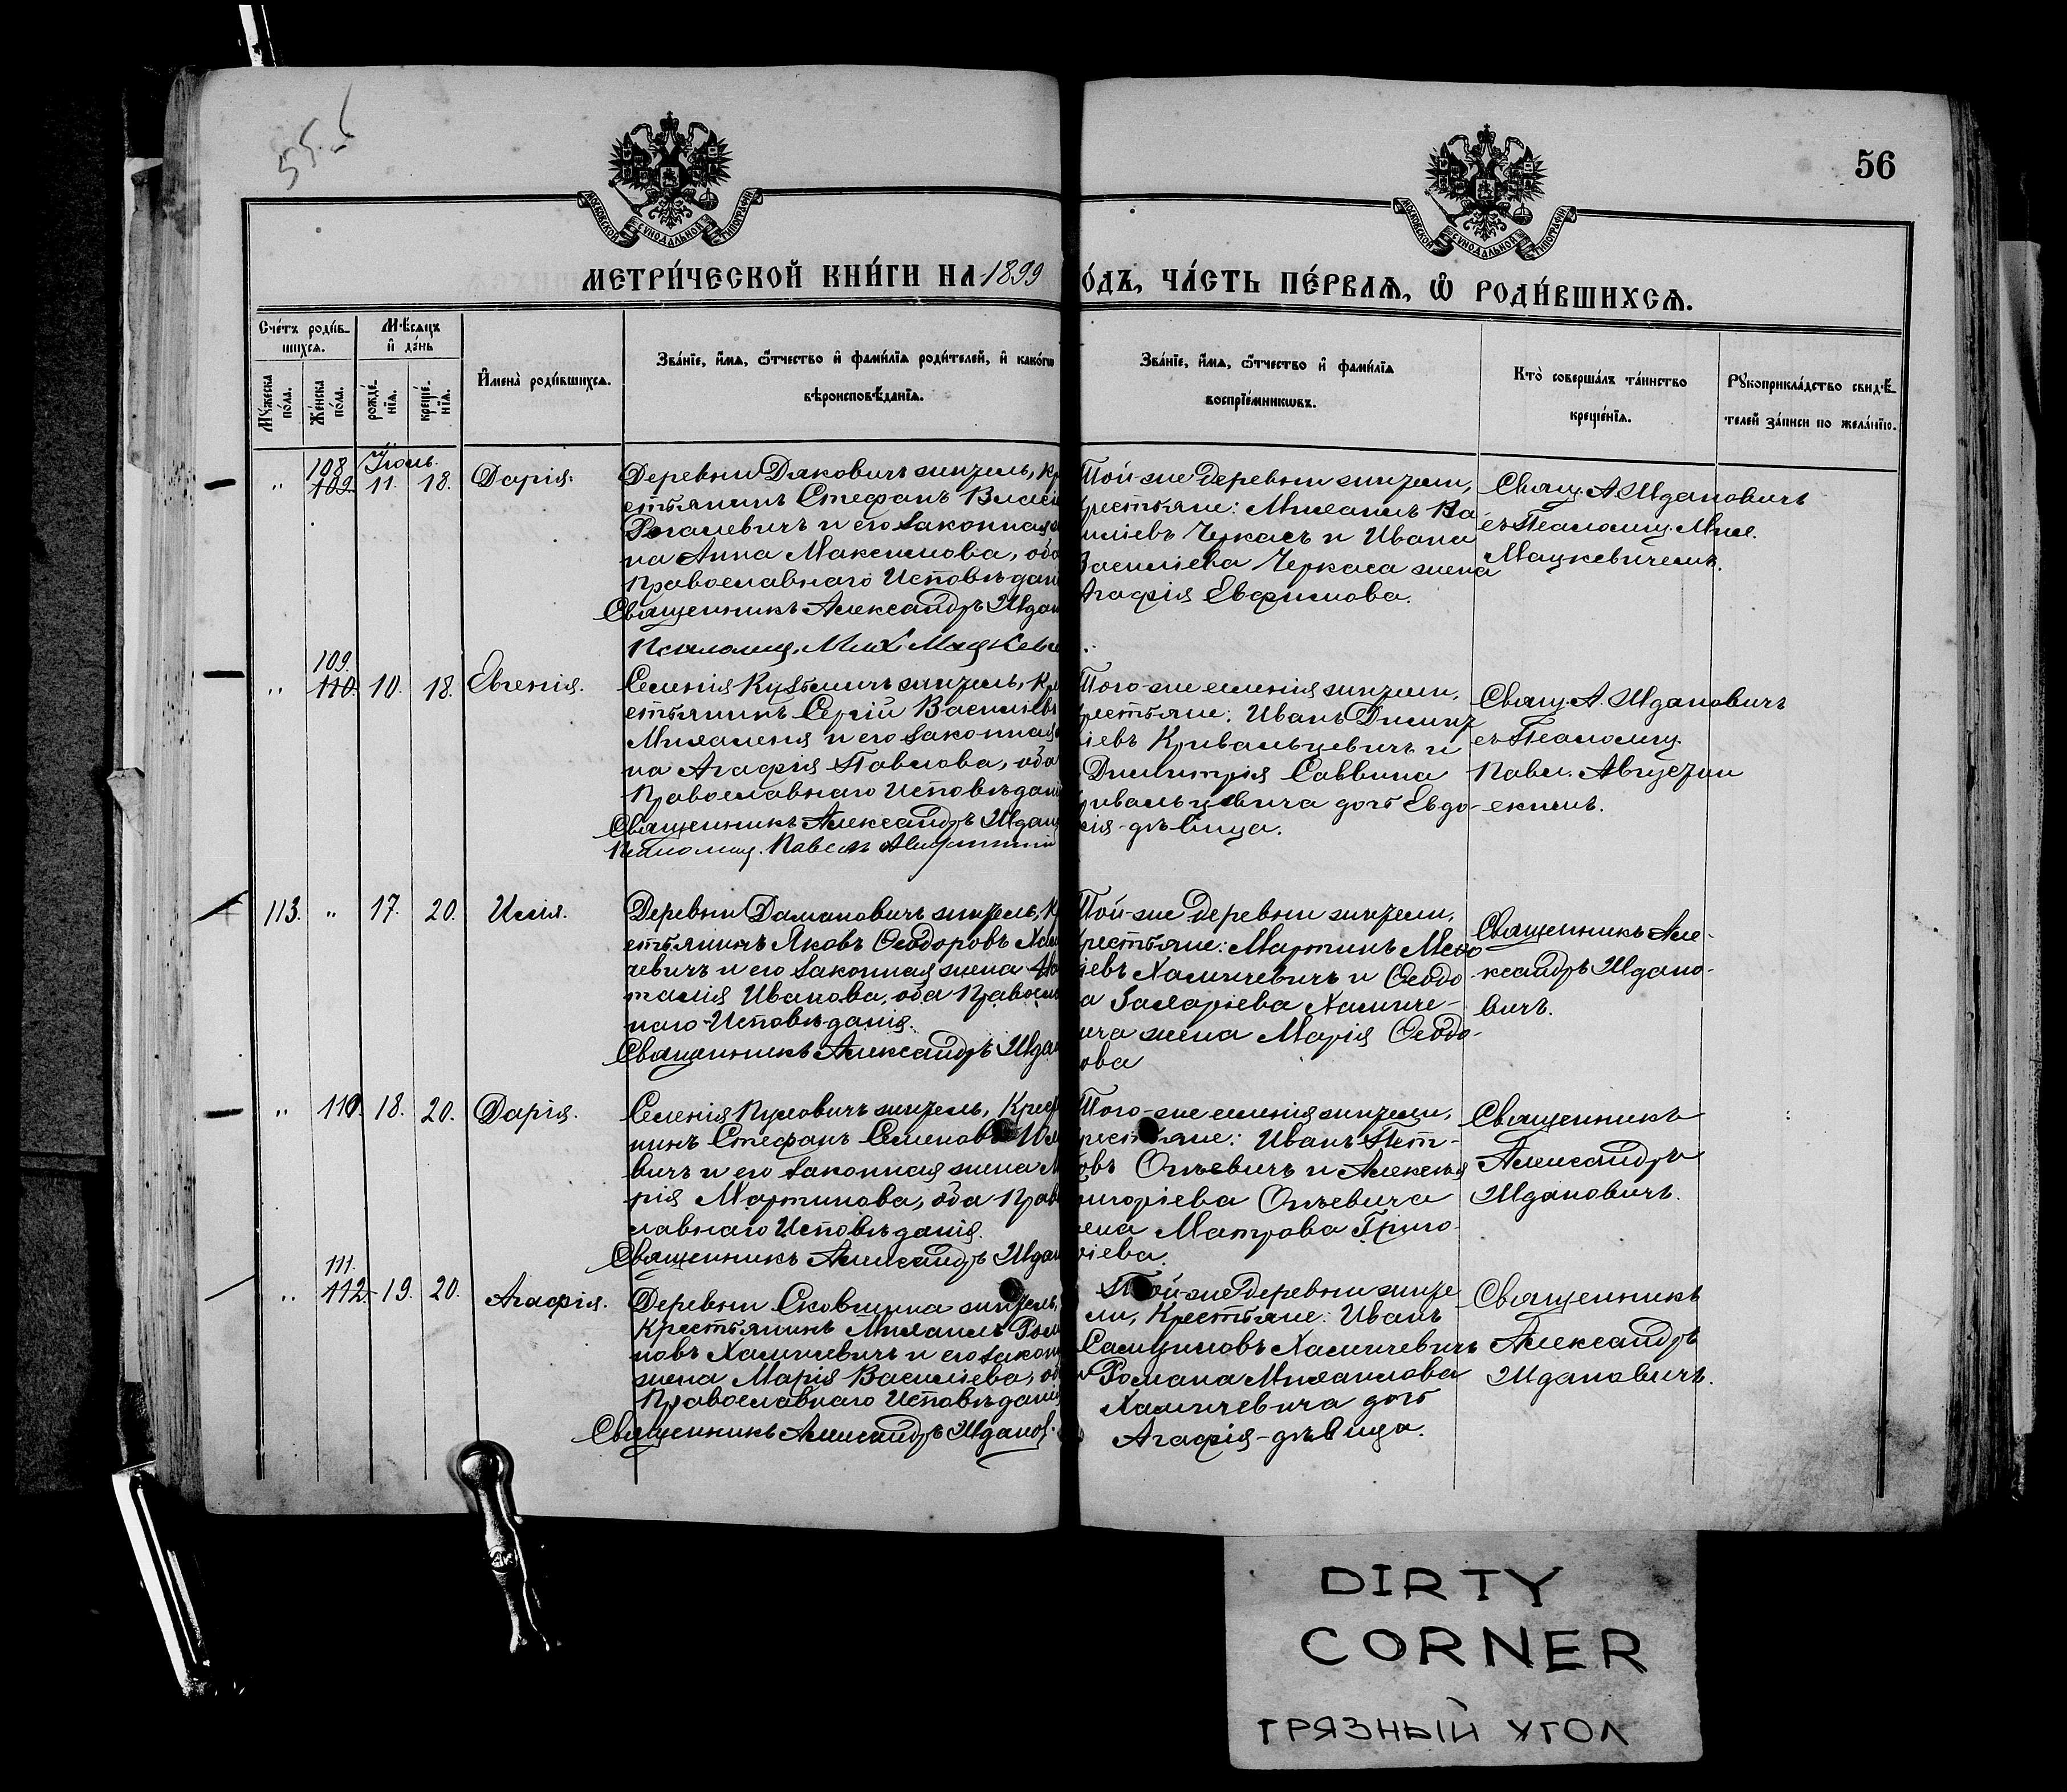 55.
56
МОСКОВСКОЙ СѴНОДАЛЬНОЙ ТИПОГРАФІИ
МОСКОВСКОЙ СѴНОДАЛЬНОЙ ТИПОГРАФІИ
МЕТРИ́ЧЕСКОЙ КНИ́ГИ НА 1899
О́ДЪ, ЧА́СТЬ ПЕ́РВАѦ, Ѡ҆ РОДИ́ВШИХСѦ.
Сче́тъ роди́в-
шихсѧ.
Мѣ́сѧцъ
и҆ де́нь
Мꙋ́жеска по́ла.
Же́нска по́ла.
рожде́-нїѧ.
креще́-нїѧ.
И҆мена̀ роди́вшихсѧ.
Зва́нїе, и҆́мѧ, ѻ҆́тчество и҆ фами́лїѧ роди́телей, и҆ како́гѡ
вѣроисповѣ́данїѧ.
Зва́нїе, и҆́мѧ, ѻ҆́тчество и҆ фами́лїѧ
воспрїе́мникѡвъ.
Кто̀ соверша́лъ та́инство
креще́нїѧ.
Рꙋкоприкла́дство свидѣ́-
телей за́писи по жела́нїю.
" 108 109. Іюль. 11. 18. Дарія.
Деревни Дяковичъ житель, кр
естьянинъ Стефанъ Васил
Рогалевичъ и его законная
на Анна Максимова, оба
Православнаго Исповѣдан
Священникъ Александръ Ждан
Псаломщ. Мих Мацкеви
Той-же деревни жители,
рестьяне: Михаилъ Ва-
силіевъ Черкасъ и Ивана
Василіева Черкаса жена
Агафія Евфимова.
Свящ. А. Ждановичъ
съ Псаломщ. Мих.
Мацкевичемъ.
" 109. 110. 10. 18. Евгенія.
Селенія Кузьмичъ житель, кре
естьянинъ Сергій Василіевъ
Михаленя и его законная
на Агафія Павлова, оба
Православнаго Исповѣдані
Священникъ Александръ Ждан
Псаломщ. Павелъ
Того-же селенія жители,
рестьяне: Иванъ Димит
іевъ Кривальцевичъ и
Димитрія Саввина
ривальцевича дочь Евдо-
кія-дѣвица.
Свящ. А. Ждановичъ
съ Псаломщ.
Павл. Августин
скимъ.
113. " 17. 20. Илія.
Деревни Дамановичъ житель, к
естьянинъ Яковъ Ѳеодоровъ Хам
чевичъ и его законная жена На
талія Иванова, оба Правосл
наго Исповѣданія.
Священникъ Александръ Ждан
Той-же деревни жители,
рестьяне: Мартинъ Меѳо
іевъ Хамичевичъ и Ѳеодо
а Захаріева Хамиче-
ича жена Марія Ѳеодо-
ова
Священникъ Але-
ксандръ Ждано-
вичъ.
" 110. 18. 20. Дарія.
Селенія Пуховичъ житель, Крест
нинъ Стефанъ Семеновъ
вичъ и его законная жена М
рія Мартинова, оба Прав
славнаго Исповѣданія.
Священникъ Александръ Ждан
Того-же селенія жители,
рестьяне: Иванъ Пет-
овъ Опъевичъ и Алексѣя
ригоріева Опъевича
ена Матрова Григо-
ріева.
Священникъ
Александръ
Ждановичъ.
" 111. 112. 19. 20. Агафія.
Деревни Сковшина житель,
Крестьянинъ Михаилъ Ром
новъ Хамичевичъ и его закон
жена Марія Василіева, об
Православнаго Исповѣдані
Священникъ Александръ Жданов.
Той-же деревни жите
ли, Крестьяне: Иванъ
Самуиловъ Хамичевичъ
и Романа Михаилова
Хамичевича дочь
Агафія-дѣвица.
Священникъ
Александръ
Ждановичъ.
DIRTY
CORNER
ГРЯЗНЫЙ УГОЛ